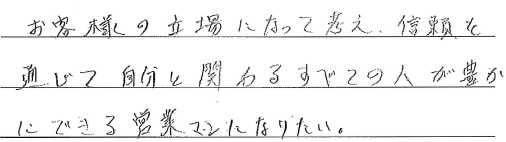 お客様の立場になって考え、信頼を
通じて自分と関わるすべての人が豊か
にできる営業マンになりたい。